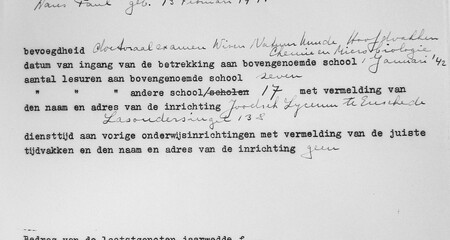 Hans Paul geb. 13 Februari
bevoegdheid Doctoraal examen Wis en Natuurkunde, Hoofdvakken
Chemie en Microbiologie
datum van ingang van de betrekking aan bovengenoemde school 1 Januari '42
aantal lesuren aan bovengenoemde school zeven
" " " andere school/scholen 17 met vermelding van
den naam en adres van de inrichting Joodsch Lyceum te Enschede
Lasondersingel 138
diensttijd aan vorige onderwijsinrichtingen met vermelding van de juiste
tijdvakken en den naam en adres van de inrichting geen
Bedrag van de laatstgenoten jaarwedde f